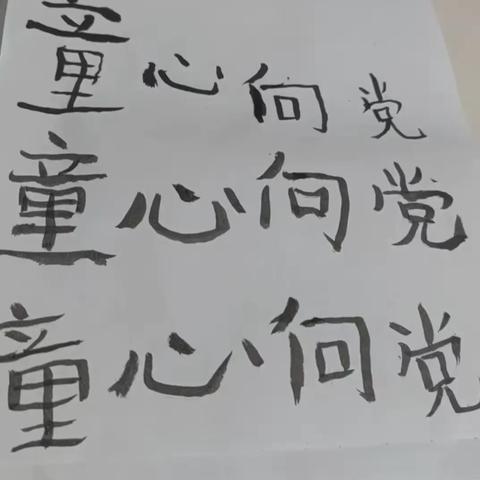 童心向党
童心向党
童心向党